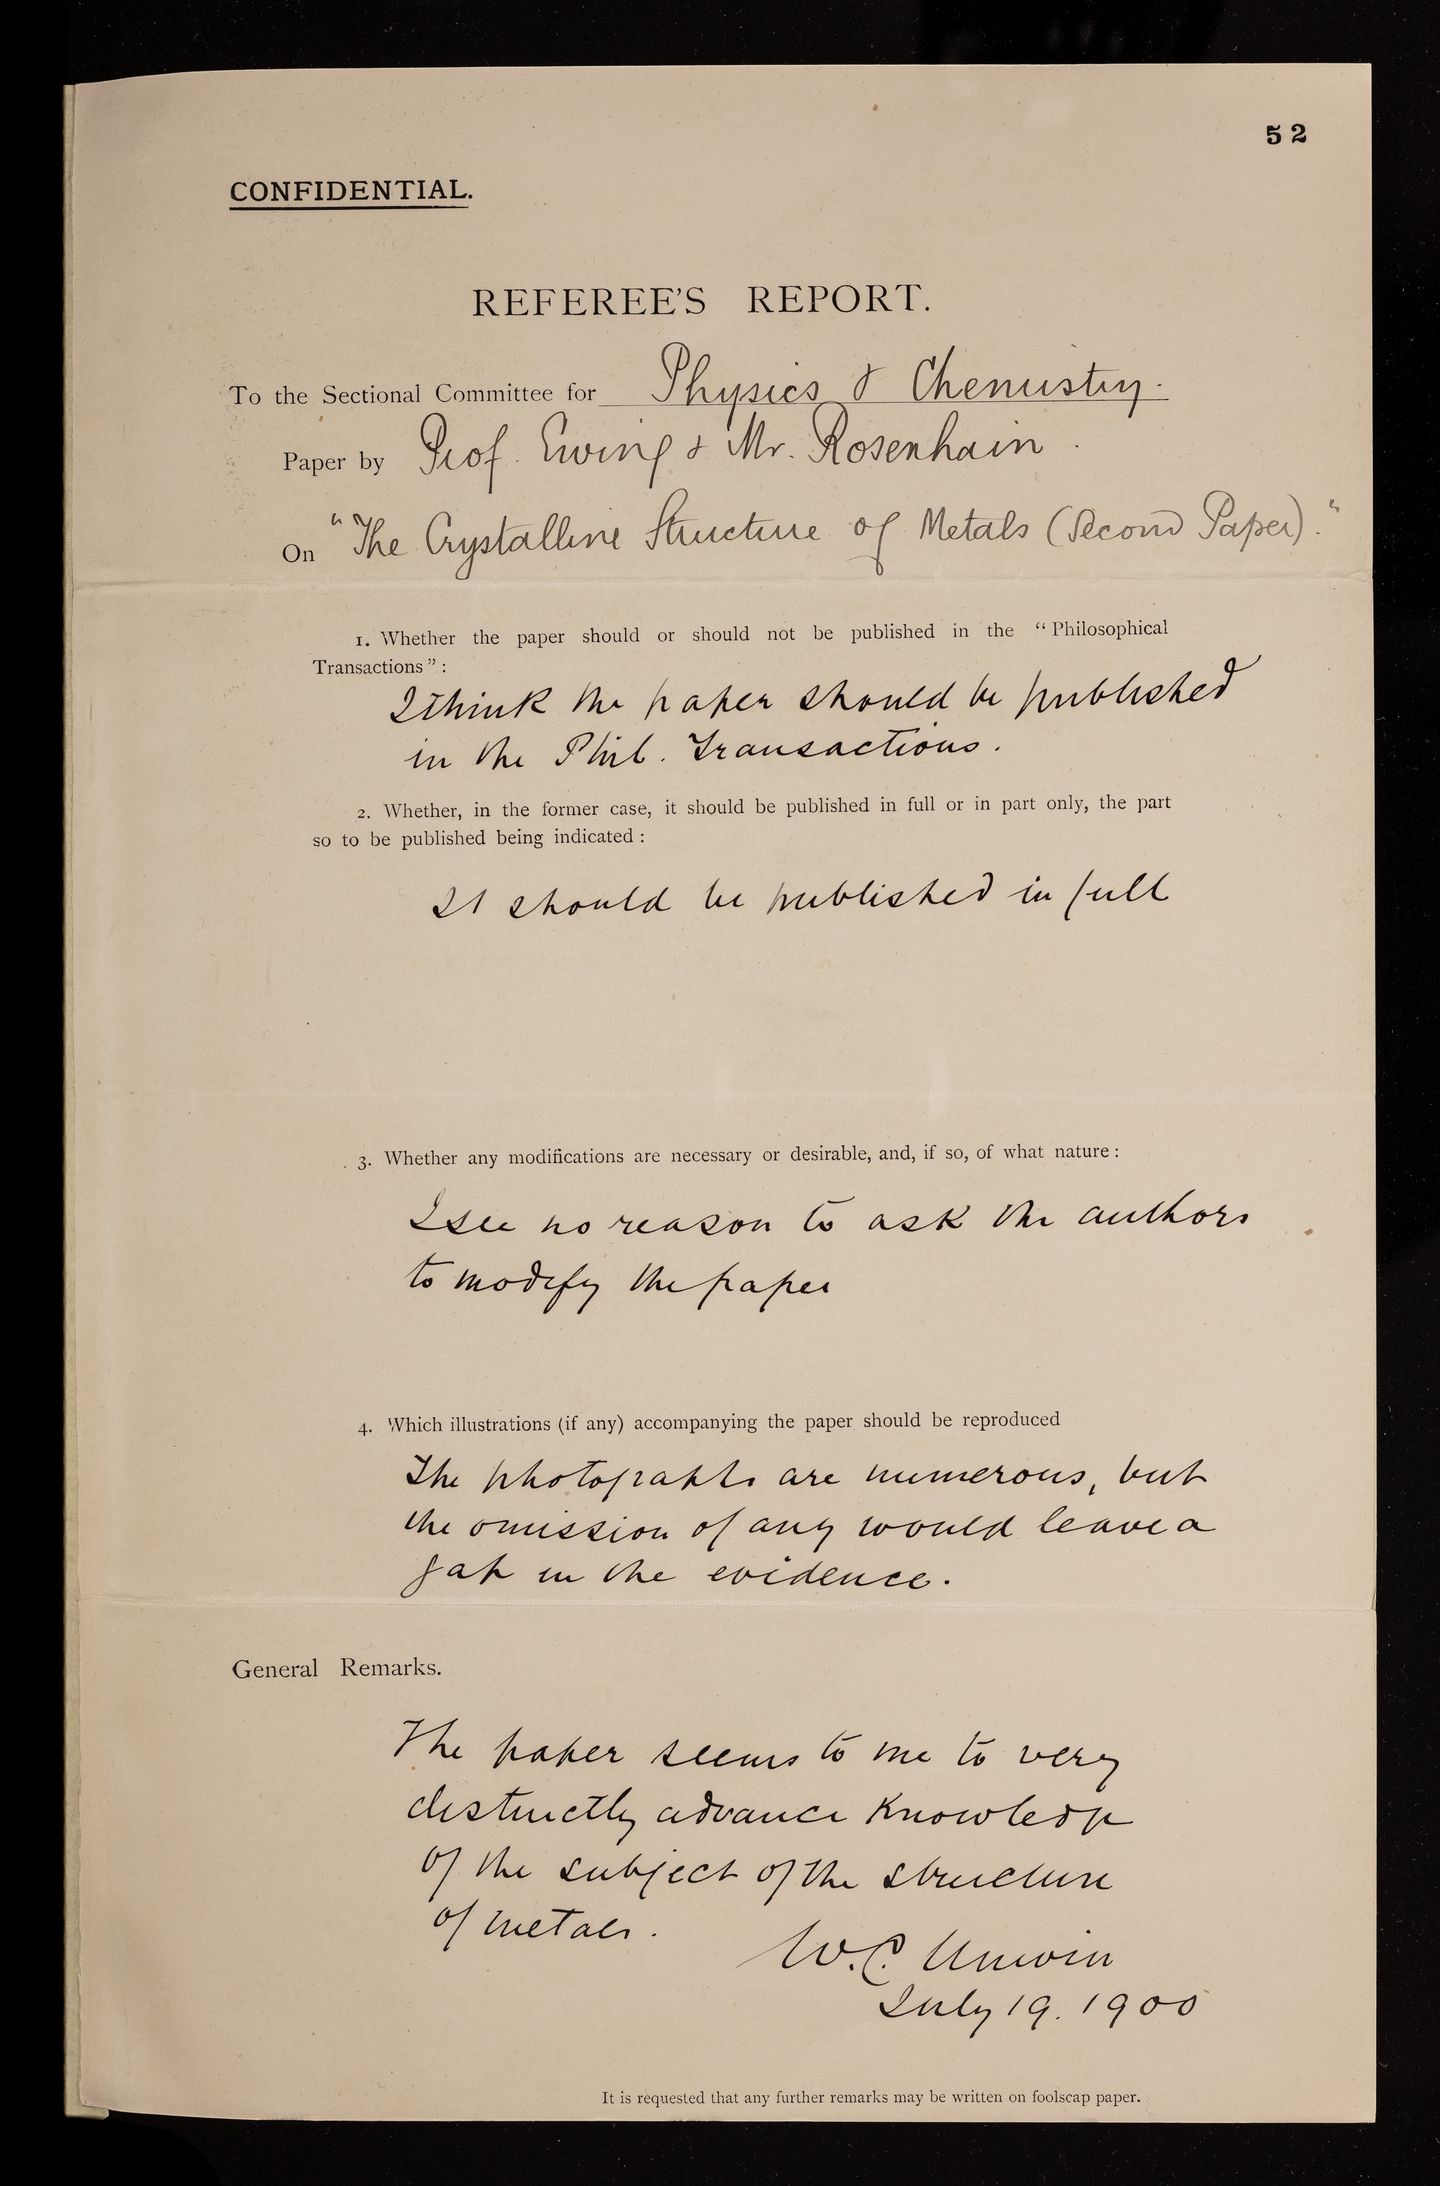 52
CONFIDENTIAL.
REFEREE'S REPORT.
To the Sectional Committee for Physics & Chemistry.
Paper by Prof. Ewing & Mr. Rosenhain.
On "The Crystalline Structure of Metals (Second Paper)."
1. Whether the paper should or should not be published in the "Philosophical
Transactions":
I think the paper should be published
in the Phil. Transactions.
2. Whether, in the former case, it should be published in full or in part only, the part
so to be published being indicated:
It should be published in full
3. Whether any modifications are necessary or desirable, and, if so, of what nature:
I see no reason to ask the authors
to modify the paper
4. Which illustrations (if any) accompanying the paper should be reproduced
The photographs are numerous, but
the omission of any would leave a
gap in the evidence.
General Remarks.
The paper seems to me to very
distinctly advance knowledge
of the subject of the structure
of metals.
W. C. Unwin
July 19. 1900
It is requested that any further remarks may be written on foolscap paper.